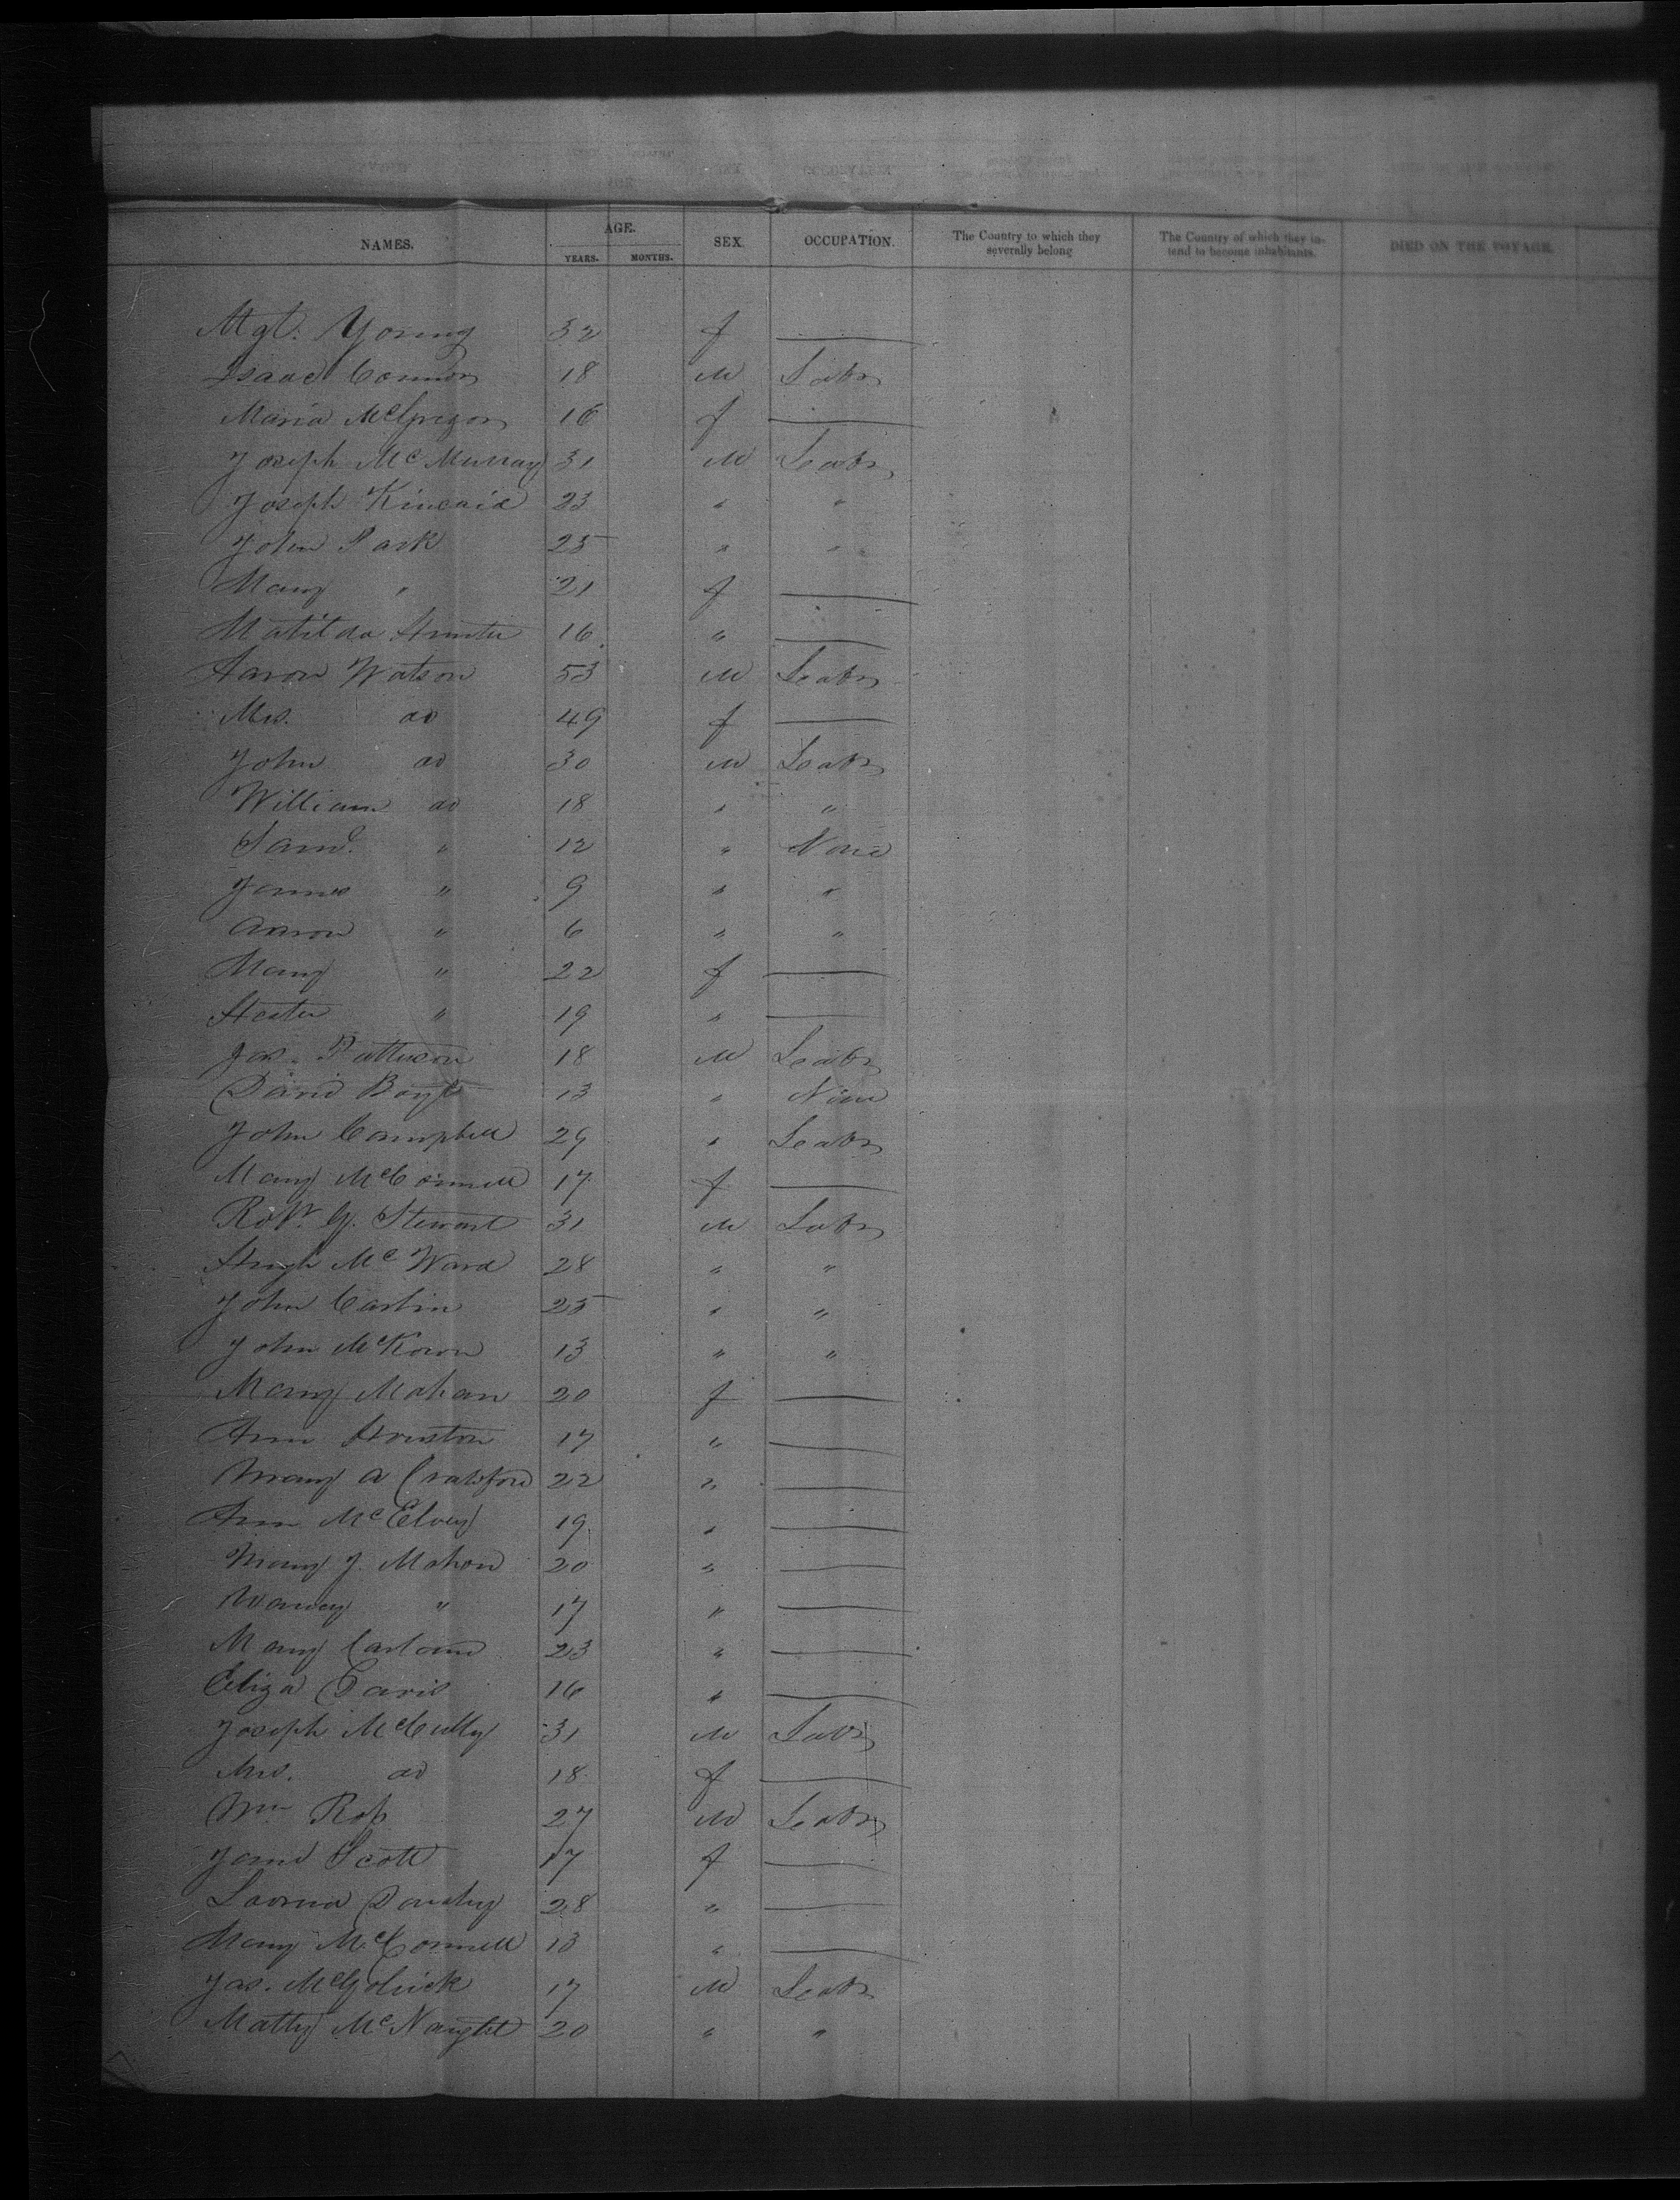 NAMES. AGE. YEARS. MONTHS. SEX. OCCUPATION. The Country to which they severally belong The Country of which they intend to become inhabitants. DIED ON THE VOYAGE.
Mgt. Young 32 f —
Isaac Connor 18 M Labr
Maria McGregor 16 f —
Joseph McMurray 31 M Labr
Joseph Kincaid 23 " "
John Park 25 " "
Mary " 21 f —
Matilda Hunter 16 " —
Aaron Watson 53 M Labr
Mrs. do 49 f —
John do 30 M Labr
William do 18 " "
Saml. " 12 " None
James " 9 " "
Aaron " 6 " "
Mary " 22 f —
Hester " 19 " —
Jas. Patterson 18 M Labr
David Boyd 13 " None
John Campbell 29 " Labr
Mary McConnell 17 f —
Robt. G. Stewart 31 M Labr
Hugh McWard 28 " "
John Carlin 25 " "
John McKown 13 " "
Mary Mahan 20 f —
Ann Houston 17 " —
Mary A Crawford 22 " —
Ann McElvey 19 " —
Mary J. Mahon 20 " —
Nancy " 17 " —
Mary 23 " —
Eliza Davis 16 " —
Joseph McCully 31 M Labr
Mrs. do 18 f —
Wm Ross 27 M Labr
Jane Scott 17 f —
28 " —
Mary McConnell 13 " —
Jas. McGolrick 17 M Labr
Matty 20 " "